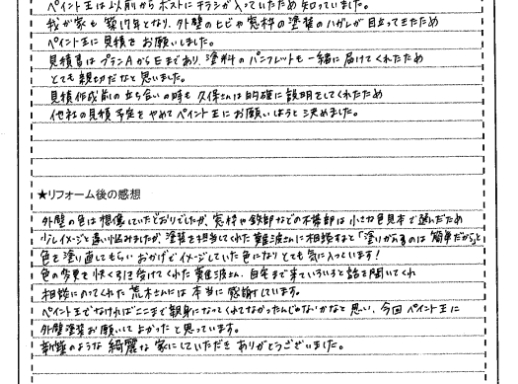 ペイント王は以前からポストにチラシが入っていたため知っていました。
我が家も築17年となり、外壁のヒビや窓枠の塗装のハガレが目立ってきたため
ペイント王に見積をお願いしました。
見積書はプランAからEまであり、塗料のパンフレットも一緒に届けてくれたため
とても親切だなと思いました。
見積作成前の立ち合いの時も久保さんは的確に説明をしてくれたため
他社の見積予定をやめてペイント王にお願いしようと決めました。
★リフォーム後の感想
外壁の色は想像していたとおりでしたが、窓枠や鉄部などの木部は小さな色見本で選んだため
少しイメージと違い悩みましたが、塗装を担当してくれた難波さんに相談すると「塗りかえるのは簡単だから」と
色を塗り直してもらい おかげでイメージしていた色になりとても気に入っています!
色の変更を快く引き受けてくれた難波さん、自宅まで来ていろいろと話を聞いてくれ
相談にのってくれた荒木さんには本当に感謝しています。
ペイント王でなければここまで親身になってくれてなかったんじゃないかなと思い、今回ペイント王に
外壁塗装お願いしてよかったと思っています。
新築のような綺麗な家にしていただき ありがとうございました。